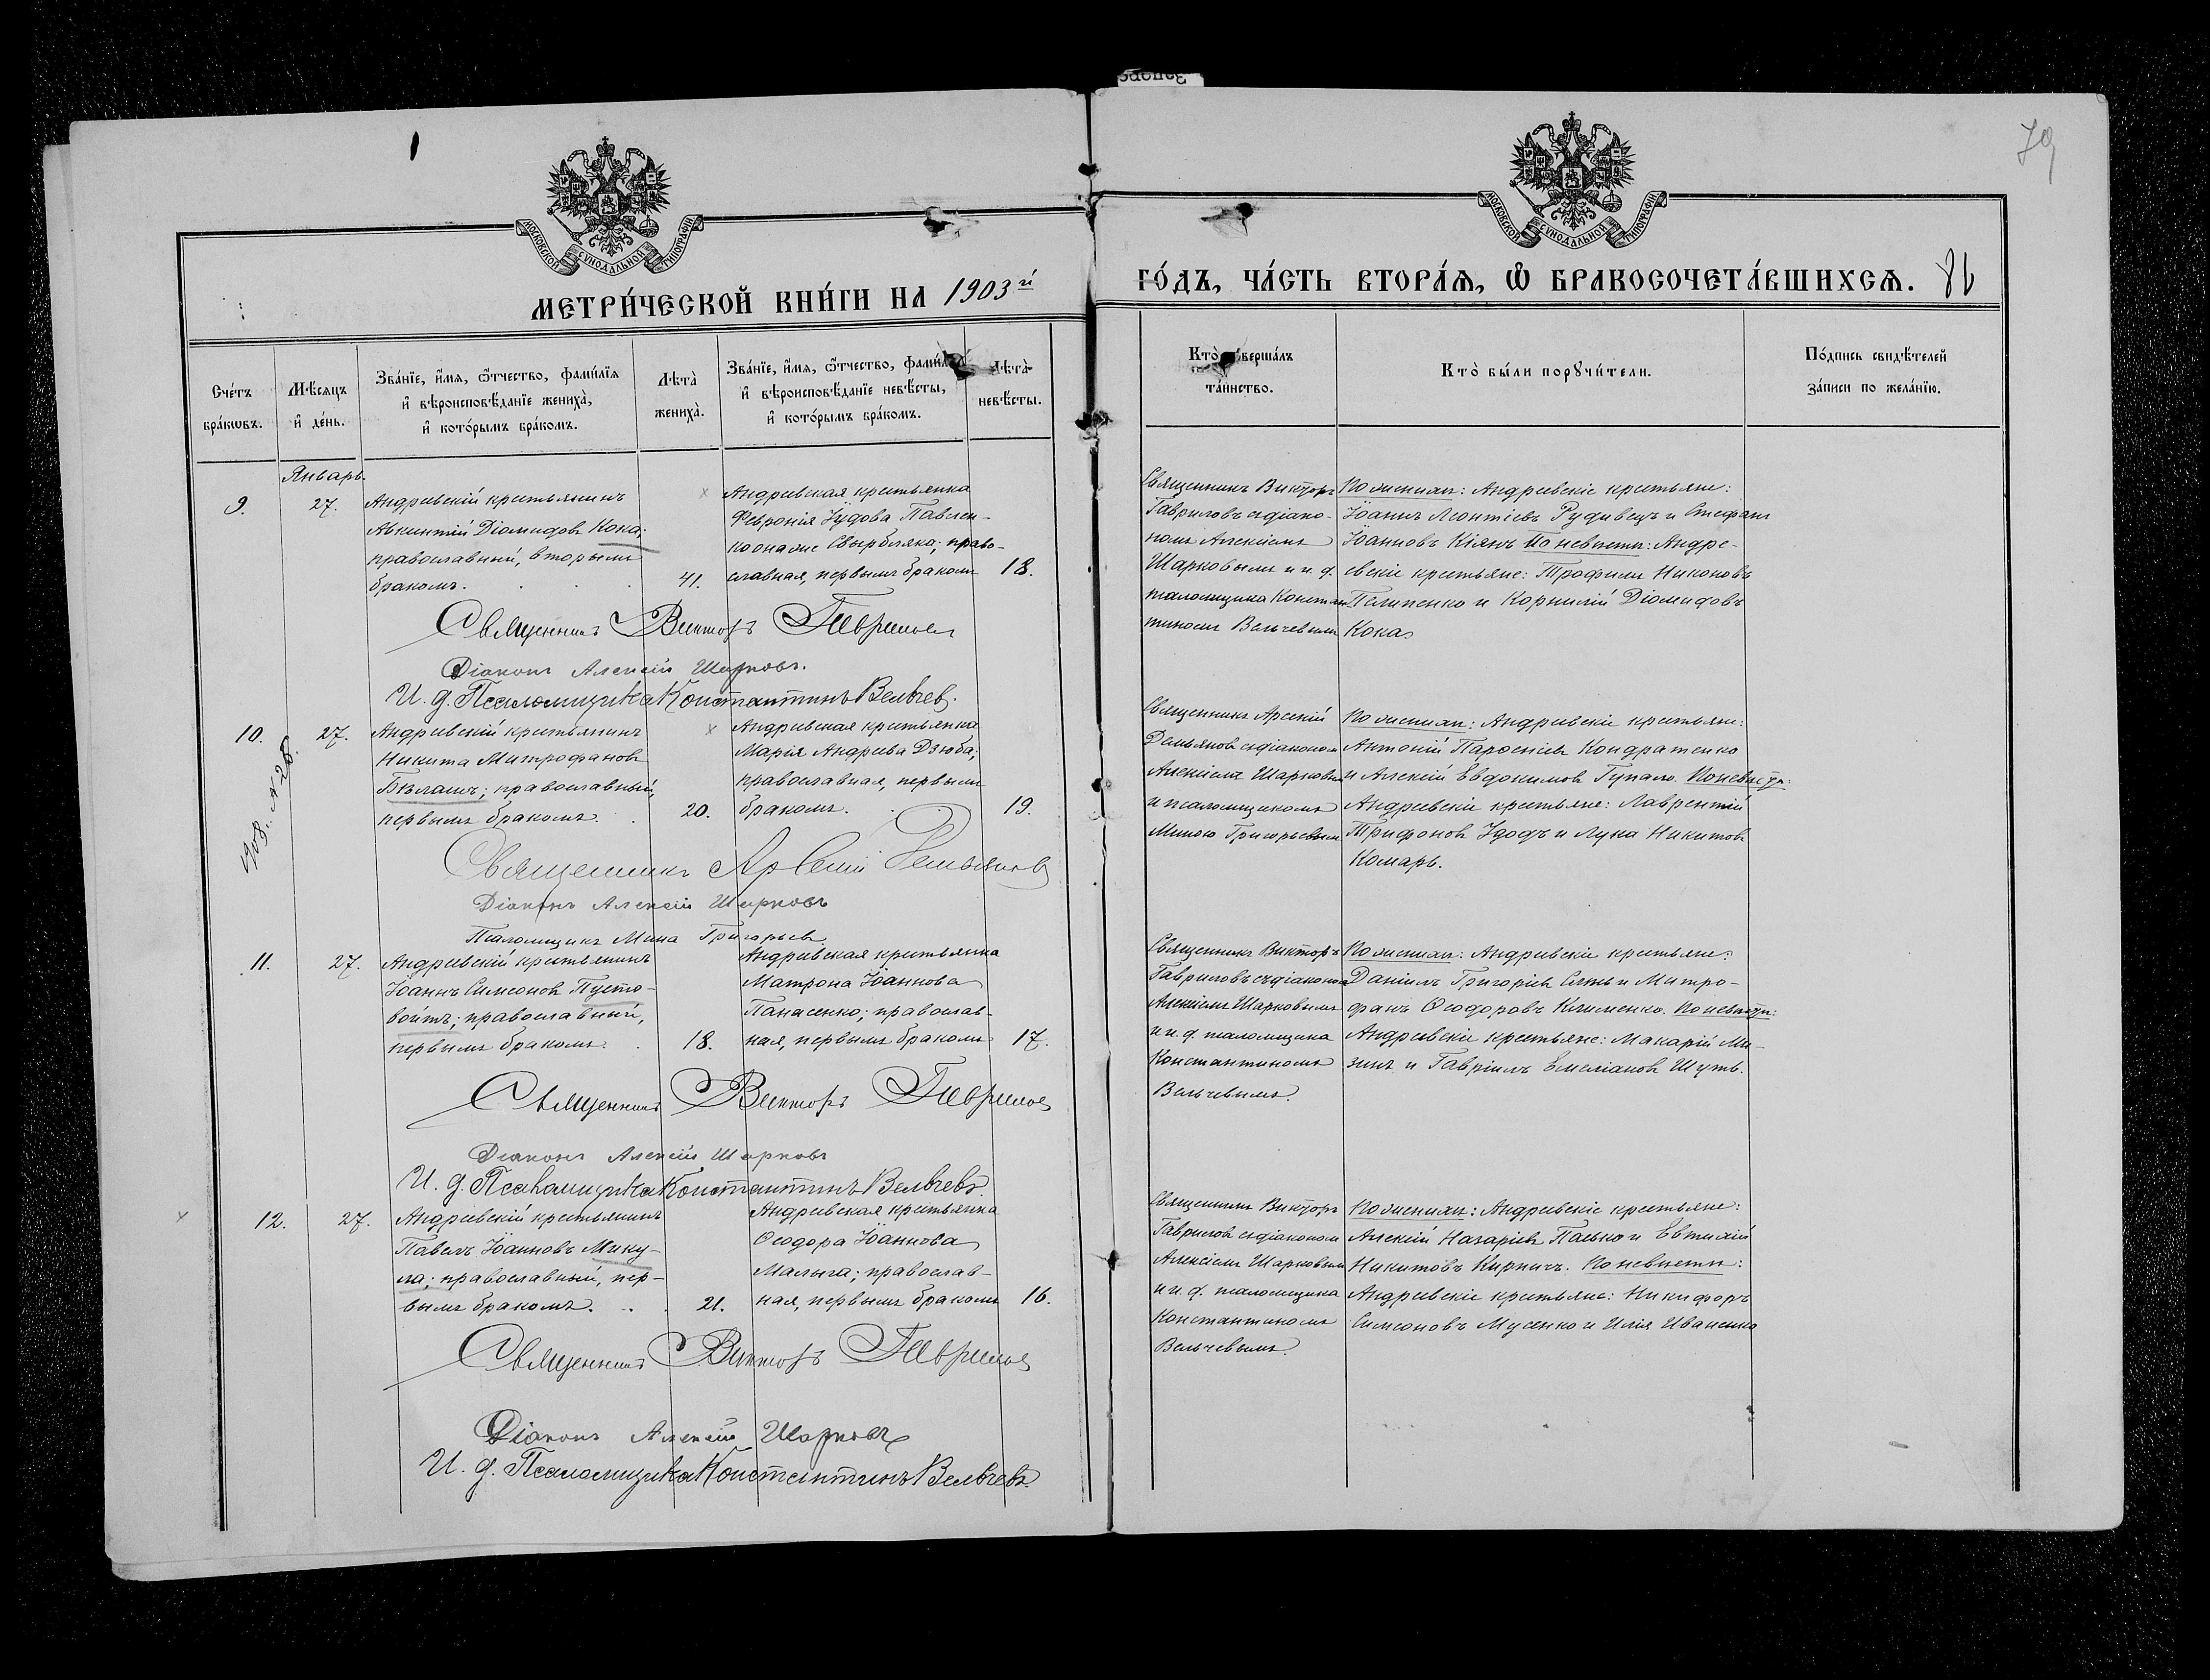 79
МОСКОВСКОЙ СѴНОДАЛЬНОЙ ТИПОГРАФІИ
МОСКОВСКОЙ СѴНОДАЛЬНОЙ ТИПОГРАФІИ
МЕТРИ́ЧЕСКОЙ КНИ́ГИ НА 1903й
ГО́ДЪ, ЧА́СТЬ ВТОРА́Ѧ, Ѽ БРАКОСОЧЕТА́ВШИХСѦ.
Сче́тъ
бра́кѡвъ.
Мѣ́сѧцъ
и҆ де́нь.
Зва́нїе, и҆́мѧ, ѻ҆́тчество, фами́лїѧ
и҆ вѣроисповѣ́данїе жениха̀,
и҆ кото́рымъ бра́комъ.
Лѣта̀
жениха̀.
Зва́нїе, и҆́мѧ, ѻ҆́тчество, фами́лїѧ
и҆ вѣроисповѣ́данїе невѣ́сты,
и҆ кото́рымъ бра́комъ.
Лѣта̀
невѣ́сты.
Кто̀ соверша́лъ
та́инство.
Кто̀ бы́ли порꙋчи́тели.
По́дпись свидѣ́телей
за́писи по жела́нїю.
Январь.
9.
27.
Андреевскій крестьянинъ
Авксентій Діомидовъ Кока;
православный, вторымъ
бракомъ.
41.
Андреевская крестьянка
Февронія Іудова Павлен-
ко она же Свырбляка; право-
славная, первымъ бракомъ
18.
Священникъ Викторъ
Гавриловъ съ діако-
номъ Алексіемъ
Шарковымъ и и. д.
псаломщика Констан-
тиномъ Вельчевымъ
По женихѣ: Андреевскіе крестьяне:
Іоаннъ Леонтіевъ Рудивецъ и Стефанъ
Іоанновъ Кіянъ По невѣстѣ: Андре-
евскіе крестьяне: Трофимъ Никоновъ
Пелипенко и Корнилій Діомидовъ
Кока
Священникъ Викторъ Гавриловъ
Діаконъ Алексій Шарковъ.
И. д. Псаломщика Константинъ Вельчевъ.
10.
27.
1908. № 28.
Андреевскій крестьянинъ
Никита Митрофановъ
Бѣлашъ; православный,
первымъ бракомъ.
20.
Андреевская крестьянка
Марія Андреева Дзюба;
православная, первымъ
бракомъ.
19.
Священникъ Арсеній
Демьяновъ съ діакономъ
Алексіемъ Шарковымъ
и псаломщикомъ
Миною Григорьевымъ
По женихѣ: Андреевскіе крестьяне:
Антоній Пароеніевъ Кондратенко
и Алексій Евдокимовъ Гупало. По невѣстѣ:
Андреевскіе крестьяне: Лаврентій
Трифоновъ Удодъ и Лука Никитовъ
Комаръ.
Священникъ Арсеній Демьяновъ
Діаконъ Алексій Шарковъ
Псаломщикъ Мина Григорьевъ
11.
27.
Андреевскій крестьянинъ
Іоаннъ Симеоновъ Пусто-
войтъ; православный,
первымъ бракомъ.
18.
Андреевская крестьянка
Матрона Іоаннова
Панасенко; православ-
ная, первымъ бракомъ
17.
Священникъ Викторъ
Гавриловъ съ діакономъ
Алексіемъ Шарковымъ
и и. д. псаломщика
Константиномъ
Вельчевымъ.
По женихѣ: Андреевскіе крестьяне:
Даніилъ Григоріевъ и Митро-
фанъ Ѳеодоровъ Клименко. По невѣстѣ:
Андреевскіе крестьяне: Макарій Ми-
зинъ и Гавріилъ Емеліановъ Шуть.
Священникъ Викторъ Гавриловъ
Діаконъ Алексій Шарковъ
И. д. Псаломщика Константинъ Вельчевъ.
12.
27.
Андреевскій крестьянинъ
Павелъ Іоанновъ Мику-
ла; православный, пер-
вымъ бракомъ.
21.
Андреевская крестьянка
Ѳеодора Іоаннова
Малыга; православ-
ная, первымъ бракомъ
16.
Священникъ Викторъ
Гавриловъ съ діакономъ
Алексіемъ Шарковымъ
и и. д. псаломщика
Константиномъ
Вельчевымъ.
По женихѣ: Андреевскіе крестьяне:
Алексій Назаріевъ Палько и Евтихій
Никитовъ Кирпичъ. По невѣстѣ:
Андреевскіе крестьяне: Никифоръ
Симеоновъ Мусенко и Илія Иваненко
Священникъ Викторъ Гавриловъ
Діаконъ Алексій Шарковъ
И. д. Псаломщика Константинъ Вельчевъ.